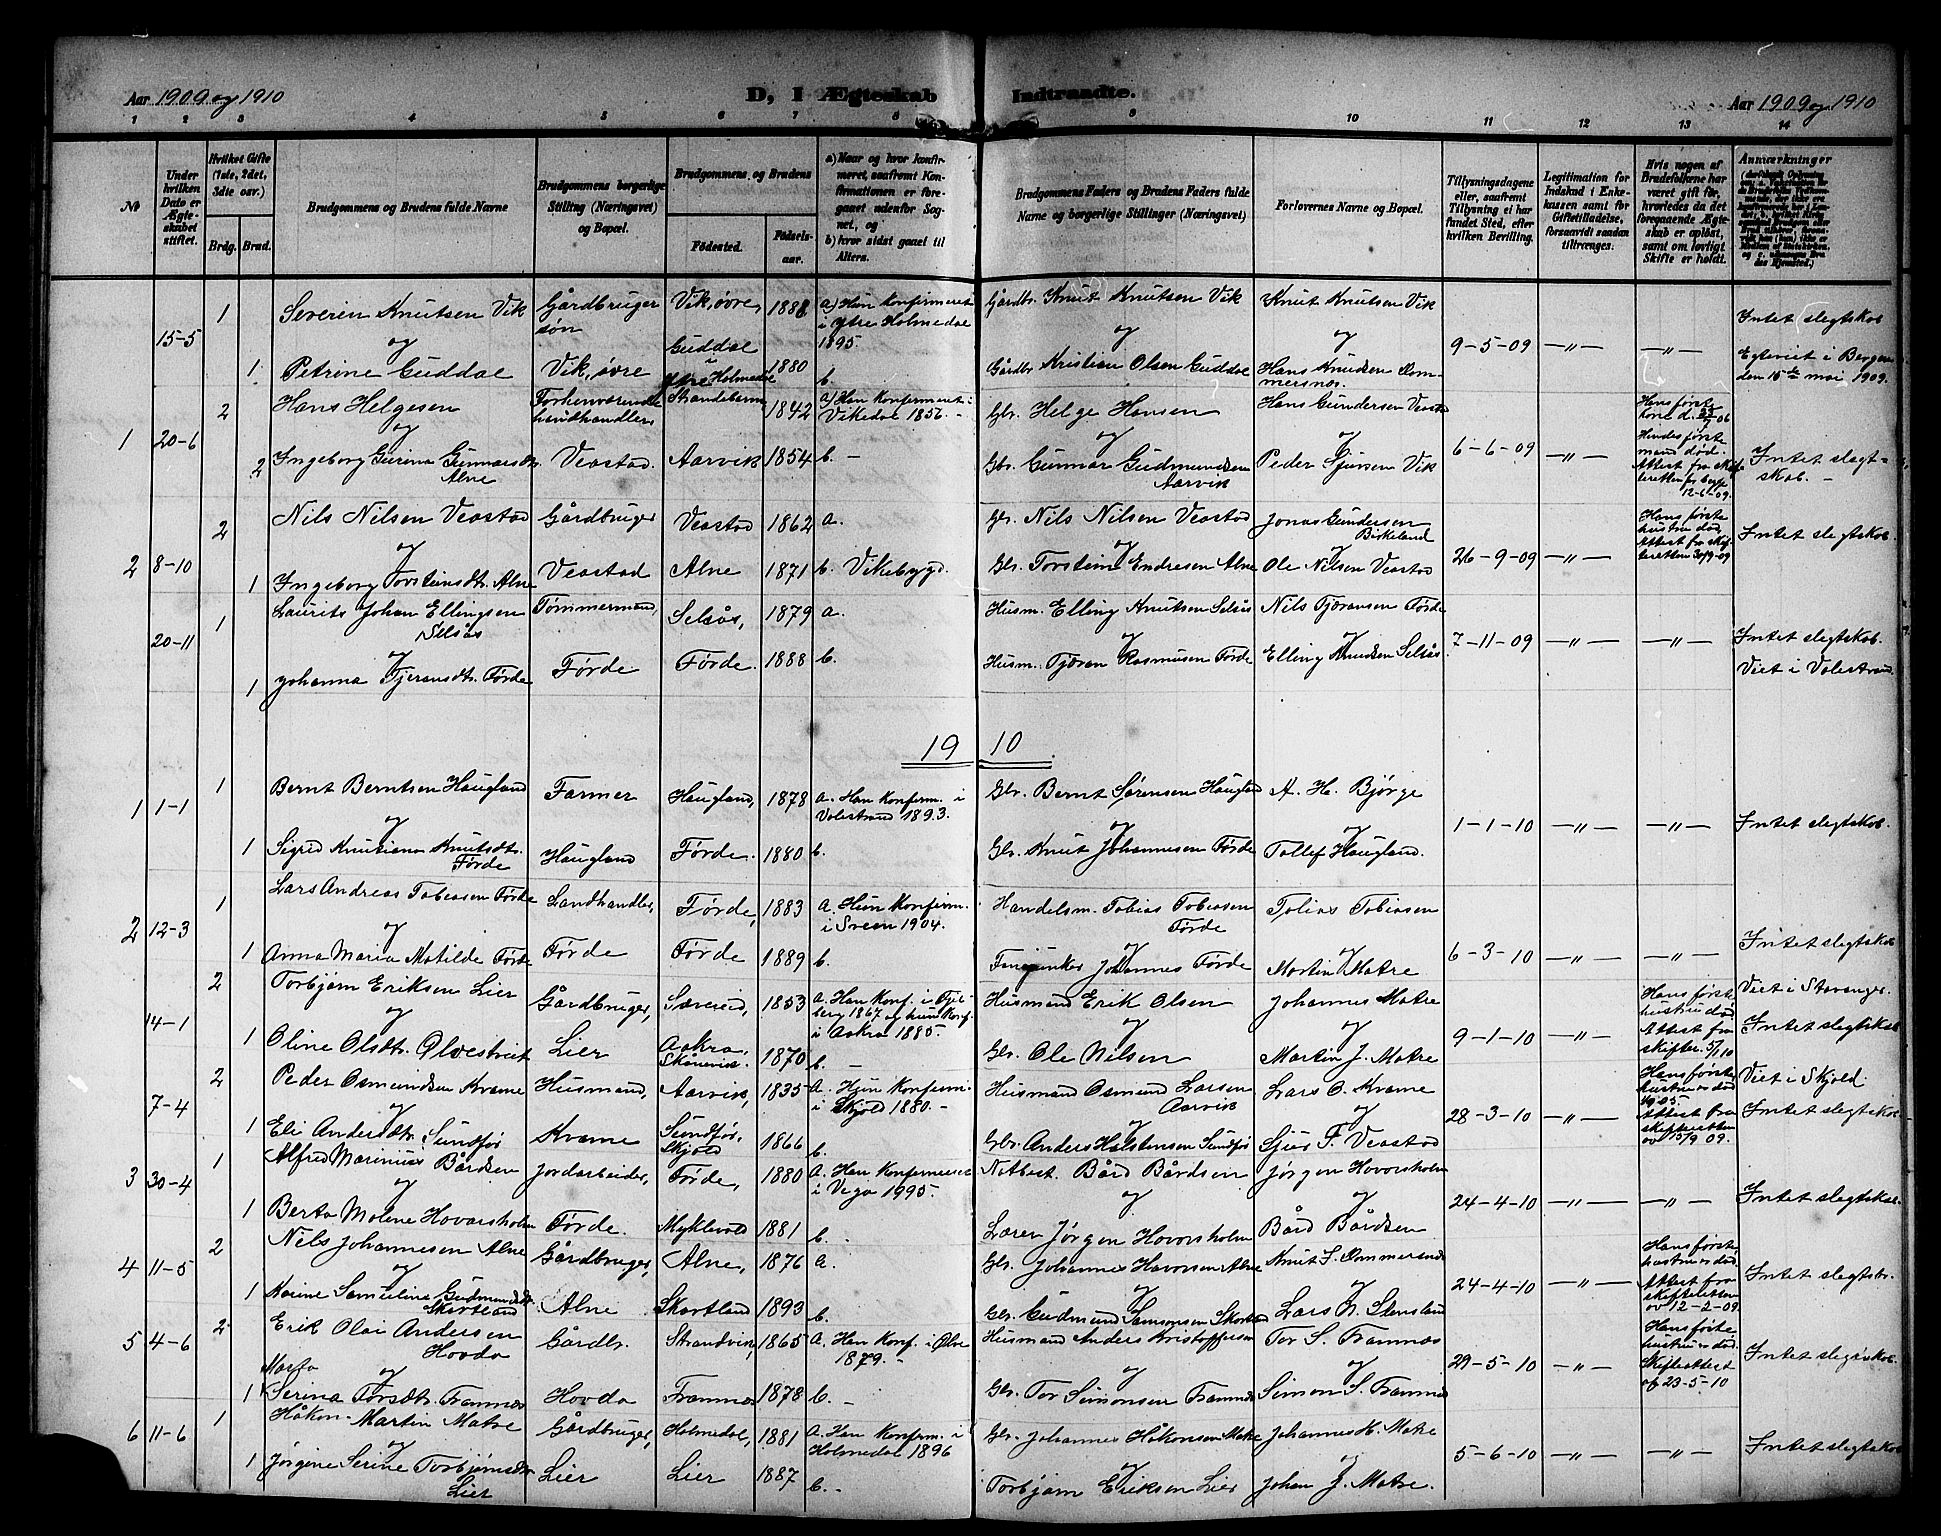 Aar 1909 og 1910
D, I Ægteskab Indtraadte.
Aar 1909 og 1910
1 2 3 4 5 6 7 8 9 10 11 12 13 14
№
Under hvilken Dato er Ægteskabet stiftet.
Hvilket Gifte (1ste, 2det, 3die osv.)
Brdg. Brud.
Brudgommens og Brudens fulde Navne
Brudgommens borgerlige Stilling (Næringsvei) og Bopæl.
Brudgommens og Brudens
Fødested.
Fødselsaar.
a) Naar og hvor konfirmeret, saafremt Konfirmationen er foregaaet udenfor Sognet, og
b) hvor sidst gaaet til Alters.
Brudgommens Faders og Brudens Faders fulde Navne og borgerlige Stillinger (Næringsvei)
Forlovernes Navne og Bopæl.
Tillysningsdagene eller, saafremt Tillysning ei har fundet Sted, efter hvilken Bevilling.
Legitimation for Indskud i Enkekassen samt for Giftetilladelse, forsaavidt saadan tiltrænges.
Hvis nogen af Brudefolkene har været gift før, hvorledes da det foregaaende Ægteskab er opløst, samt om lovligt Skifte er holdt.
Anmærkninger
15-5 1 Severin Knutsen Vik Gårdbruger søn Vik, øvre, 1888 a) Hun konfirmeret i ytre Holmedal 1895. Gårdbr. Knud Knutsen Vik Knut Knutsen Vik 9-5-09 -"- -"- Intet slegtskab
og
1 Petrine Guddal Vik, øvre Guddal i ytre Holmedal 1880 b. Gårdbr. Kristian Olsen Guddal Hans Knudsen Rommersnæs. Egteviet i Bergen den 15de mai 1909.
1 20-6 2 Hans Helgesen Forhenværende landhandler Strandebarm 1842 a) Han konfirmeret i Vikedal 1856. - Gbr. Helge Hansen Hans Gundersen Veastad 6-6-09 -"- Hans første kone d. 06 Intet slegtskab. -
og
2 Ingeborg Gurina Gunnarsdtr. Alne Veastad. Aarvik 1854 b. - Gbr. Gunnar Gudmundsen Aarvik Peder Sjursen Vik Hendes første mand død. Attest fra skifteretten 12-6-09.
2 8-10 2 Nils Nilsen Veastad Gårdbruger Veastad 1862 a. Gbr. Nils Nilsen Veastad Jonas Gundersen Birkeland 26-9-09 -"- Hans første hustru død Attest fra skifteretten 30/9-09 Intet slegtskab.
og
1 Ingeborg Torsteinsdtr. Alne Veastad Alne 1871 b. Vikebygd. Gbr. Torstein Endresen Alne Ole Nilsen Veastad
20-11 1 Laurits Johan Ellingsen Selsås Tømmermand, Selsås, 1879 a. Husm. Elling Knutsen Selsås Nils Tjøransen Førde 7-11-09 -"- -"- Intet slegtskab.
og
1 Johanna Tjeransdtr. Førde Førde Førde. 1888 b. Husm. Tjøran Rasmusen Førde Elling Knudsen Selsås. Viet i Valestrand.
19 10
1 1-1 1 Bernt Berntsen Haugland Farmer Haugland, 1878 a. Han konferm. i Valestrand 1893. Gbr. Bernt Sørensen Haugland A. H. Bjørge 1-1-10 -"- -"- Intet slegtskab.
og
1 Sigred Knutiana Knutsdtr. Førde Haugland Førde. 1880 b. Gbr. Knut Johannesen Førde Tollef Haugland.
2 12-3 1 Lars Andreas Tobiasen Førde Landhandler, Førde, 1883 a. Hun konfirm. i Sveen 1904. Handelsm. Tobias Tobiasen Førde Tobias Tobiasen 6-3-10 -"- -"- Intet slegtskab
og
1 Anna Maria Matilde Førde Førde Førde 1889 b. Johannes Førde Martin Matre Viet i Stavanger.
14-1 2 Torbjørn Eriksen Lier Gårdbruger, Sævereid, 1853 a. Han konf. i Fjelberg 1867 og hun konf. i Aakra 1885. Husmand Erik Olsen Johannes Matre 9-1-10 -"- Hans første hustru død. Attest fra skifter. 5/1 10 Intet slegtskab
og
1 Oline Olsdtr. Ølvestveit Lier Aakra, Skånevik. 1870 b. - Gbr. Ole Nilsen Martin J. Matre
7-4 2 Peder Osmundsen Kvame Husmand, Aarvik, 1835 a. Hun konferm. i Skjold 1880. - Husmand Osmund Larsen Aarvik Lars O. Kvame 28-3-10 -"- Hans første hustru er død 1905. Attest fra skifteretten av 15/9 09. Viet i Skjold. Intet slegtskab.
og
1 Eli Andersdtr. Sundfør Kvame Sundfør, Skjold 1866 b. Gbr. Anders Halstensen Sundfør Sjur F. Veastad
3 30-4 1 Alfred Marinius Bårdsen Jordarbeider, Førde, 1880 a. Han konfirmeret i Vega 1995. Notbast. Bård Bårdsen Jørgen Hovorsholm 24-4-10 -"- -"- Intet slegtskab.
og
1 Berta Malene Hovarsholm Førde. Myklevold 1881 b. - Lærer Jørgen Hovorsholm Bård Bårdsen
4 11-5 2 Nils Johannesen Alne Gårdbruger, Alne, 1876 a. Gbr. Johannes Havorsen Alne Knut S. Rommersnæs 24-4-10 -"- Hans første hustru er død. Attest fra skifteretten av 12-2-09. Intet slegtsk.
og
1 Samueline Gudmundsdtr Skartland Alne Skartland 1893 b. Gbr. Gudmund Samsonsen Skartland Lars N. Stensland
5 4-6 2 Erik Olai Andersen Hovda Gårdbr. Strandvik, 1865 a. Han konf. i Ølve 1879. - Husmand Anders Kristoffersen Tor S. Framnæs 29-5-10 -"- Hans første hustru er død. Skifteattest af 23-5-10 Intet slegtskab.
og
1 Marta Serina Torsdtr. Framnæs Hovda Framnæs 1878 b. - Gbr. Tor Simonsen Framnæs Simon S. Framnæs
6 11-6 1 Håkon Martin Matre Gårdbruger, Holmedal, 1881 a. Han konferm. i Holmedal 1896 Gbr. Johannes Håkonsen Matre Johannes H. Matre 5-6-10 -"- -"- Intet slegtskab
og
1 Jørgine Serine Torbjørnsdtr Lier Lier Lier 1887 b. - Torbjørn Eriksen Lier Johan J. Matre.